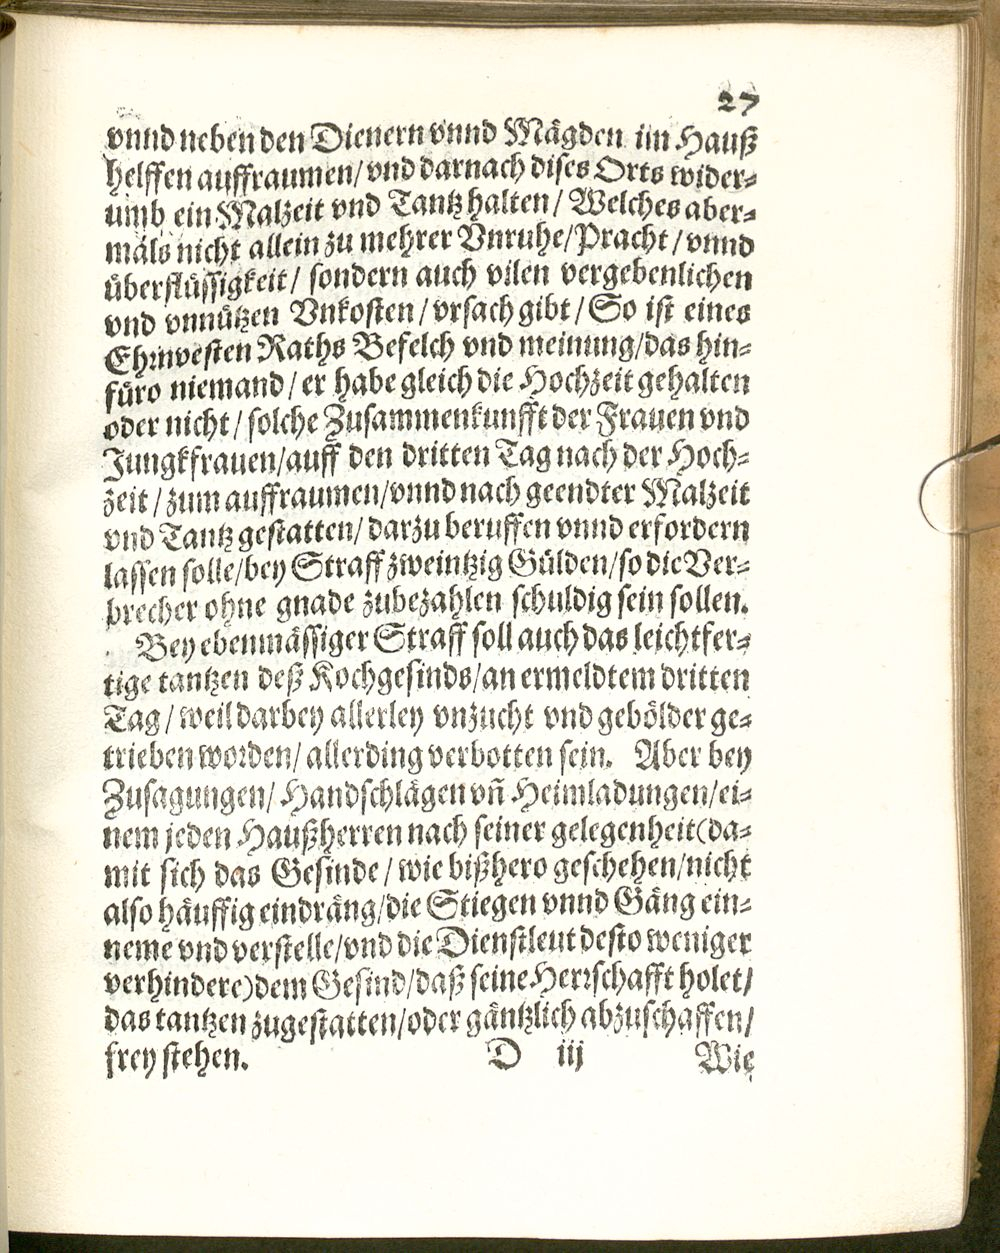 27
vnnd neben den Dienern vnnd Mägden im Hauß
helffen auffraumen/ vnd darnach dises Orts wider-
umb ein Malzeit vnd Tantz halten/ Welches aber-
mals nicht allein zu mehrer Vnruhe/ Pracht/ vnnd
überflüssigkeit/ sondern auch vilen vergebenlichen
vnd vnnützen Vnkosten/ vrsach gibt/ So ist eines
Ehrnvesten Raths Befelch vnd meinung/ das hin-
füro niemand/ er habe gleich die Hochzeit gehalten
oder nicht/ solche Zusammenkunfft der Frauen vnd
Jungkfrauen/ auff den dritten Tag nach der Hoch-
zeit/ zum auffraumen/ vnnd nach geendter Malzeit
vnd Tantz gestatten/ darzu beruffen vnnd erfordern
lassen solle/ bey Straff zweintzig Gülden/ so die Ver-
brecher ohne gnade zubezahlen schuldig sein sollen.
Bey ebenmässiger Straff soll auch das leichtfer-
tige tantzen deß Kochgesinds/ an ermeldtem dritten
Tag/ weil darbey allerley vnzucht vnd gebölder ge-
trieben worden/ allerding verbotten sein. Aber bey
Zusagungen/ Handschlägen vn̄ Heimladungen/ ei-
nem jeden Haußherren nach seiner gelegenheit (da-
mit sich das Gesinde/ wie bißhero geschehen/ nicht
also häuffig eindräng/ die Stiegen vnnd Gäng ein-
neme vnd verstelle/ vnd die Dienstleut desto weniger
verhindere) dem Gesind/ daß seine Herrschafft holet/
das tantzen zugestatten/ oder gäntzlich abzuschaffen/
frey stehen. D iij Wie